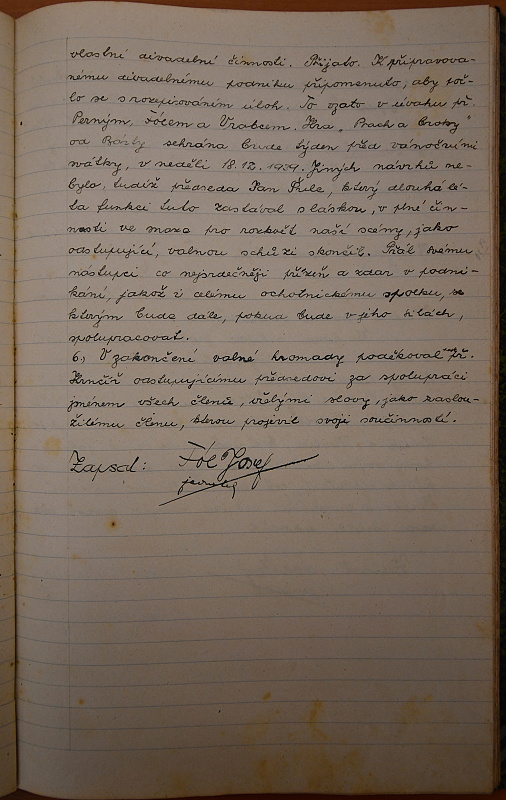 vlastní divadelní činnosti. Přijato. K připravova-
nému divadelnímu podniku připomenuto, aby zač-
lo se s rozpisováním úloh. To vzato v úvahu př.
Perným, Fólem a Vrabcem. Hra „
od sehrána bude týden před vánočními
svátky, v neděli 18.12. 1939. Jiných návrhů ne-
bylo, tudíž předseda Jan Šule, který dlouhá lé-
ta funkci tuto zastával s láskou, v plné čin-
nosti ve snaze pro rozkvět naší scény, jako
odstupující, valnou schůzi skončil. Přál svému
nástupci co nejsrdečněji přízeň a zdar v podni-
kání, jakož i celému ochotnickému spolku, se
kterým bude dále, pokud bude v jeho silách,
spolupracovat.
6.) V zakončení valné hromady poděkoval př.
Krnčíř odstupujícímu předsedovi za spolupráci
jménem všech členů, vřelými slovy, jako zaslou-
žilému členu, kterou projevil svojí součinností.
Zapsal: Fól Josef
jednatel